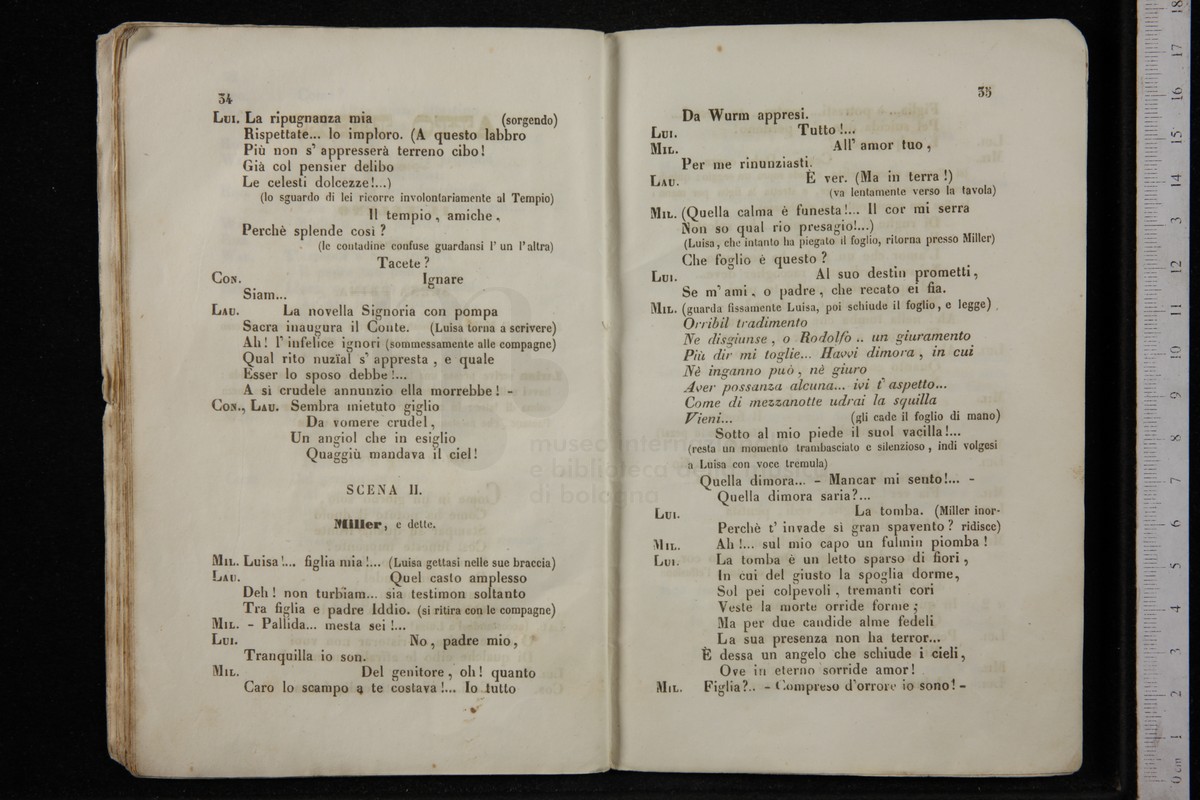 34
LUI. La ripugnanza mia (sorgendo)
Rispettate... lo imploro. (A questo labbro
Più non s' appresserà terreno cibo!
Già col pensier delibo
Le celesti dolcezze!...)
(lo sguardo di lei ricorre involontariamente al Tempio)
Il tempio, amiche,
Perchè splende così?
(le contadine confuse guardansi l' un l' altra)
Tacete?
CON. Ignare
Siam...
LAU. La novella Signoria con pompa
Sacra inaugura il Conte. (Luisa torna a scrivere)
Ah! l' infelice ignori (sommessamente alle compagne)
Qual rito nuzïal s' appresta, e quale
Esser lo sposo debbe!...
A sì crudele annunzio ella morrebbe! -
CON., LAU. Sembra mietuto giglio
Da vomere crudel,
Un angiol che in esiglio
Quaggiù mandava il ciel!
SCENA II.
Miller, e dette.
MIL. Luisa!... figlia mia!... (Luisa gettasi nelle sue braccia)
LAU. Quel casto amplesso
Deh! non turbiam... sia testimon soltanto
Tra figlia e padre Iddio. (si ritira con le compagne)
MIL. - Pallida... mesta sei!...
LUI. No, padre mio,
Tranquilla io son.
MIL. Del genitore, oh! quanto
Caro lo scampo a te costava!... Io tutto
35
Da Wurm appresi.
LUI. Tutto!...
MIL. All' amor tuo,
Per me rinunziasti.
LAU. È ver. (Ma in terra!)
(va lentamente verso la tavola)
MIL. (Quella calma è funesta!... Il cor mi serra
Non so qual rio presagio!...)
(Luisa, che intanto ha piegato il foglio, ritorna presso Miller)
Che foglio è questo?
LUI. Al suo destin prometti,
Se m' ami, o padre, che recato ei fia.
MIL. (guarda fissamente Luisa, poi schiude il foglio, e legge)
Orribil tradimento
Ne disgiunse, o Rodolfo .. un giuramento
Più dir mi toglie... Havvi dimora, in cui
Nè inganno può, nè giuro
Aver possanza alcuna... ivi t' aspetto...
Come di mezzanotte udrai la squilla
Vieni... (gli cade il foglio di mano)
Sotto al mio piede il suol vacilla!...
(resta un momento trambasciato e silenzioso, indi volgesi
a Luisa con voce tremula)
Quella dimora... - Mancar mi sento!... -
Quella dimora saria?...
LUI. La tomba. (Miller inor-
Perchè t' invade sì gran spavento? ridisce)
MIL. Ah!... sul mio capo un fulmin piomba!
LUI. La tomba è un letto sparso di fiori,
In cui del giusto la spoglia dorme,
Sol pei colpevoli, tremanti cori
Veste la morte orride forme;
Ma per due candide alme fedeli
La sua presenza non ha terror...
È dessa un angelo che schiude i cieli,
Ove in eterno sorride amor!
MIL. Figlia?.. - Compreso d'orrore io sono! -
museo internazionale
e biblioteca della musica
di bologna
0 cm 1 2 3 4 5 6 7 8 9 10 11 12 13 14 15 16 17 18